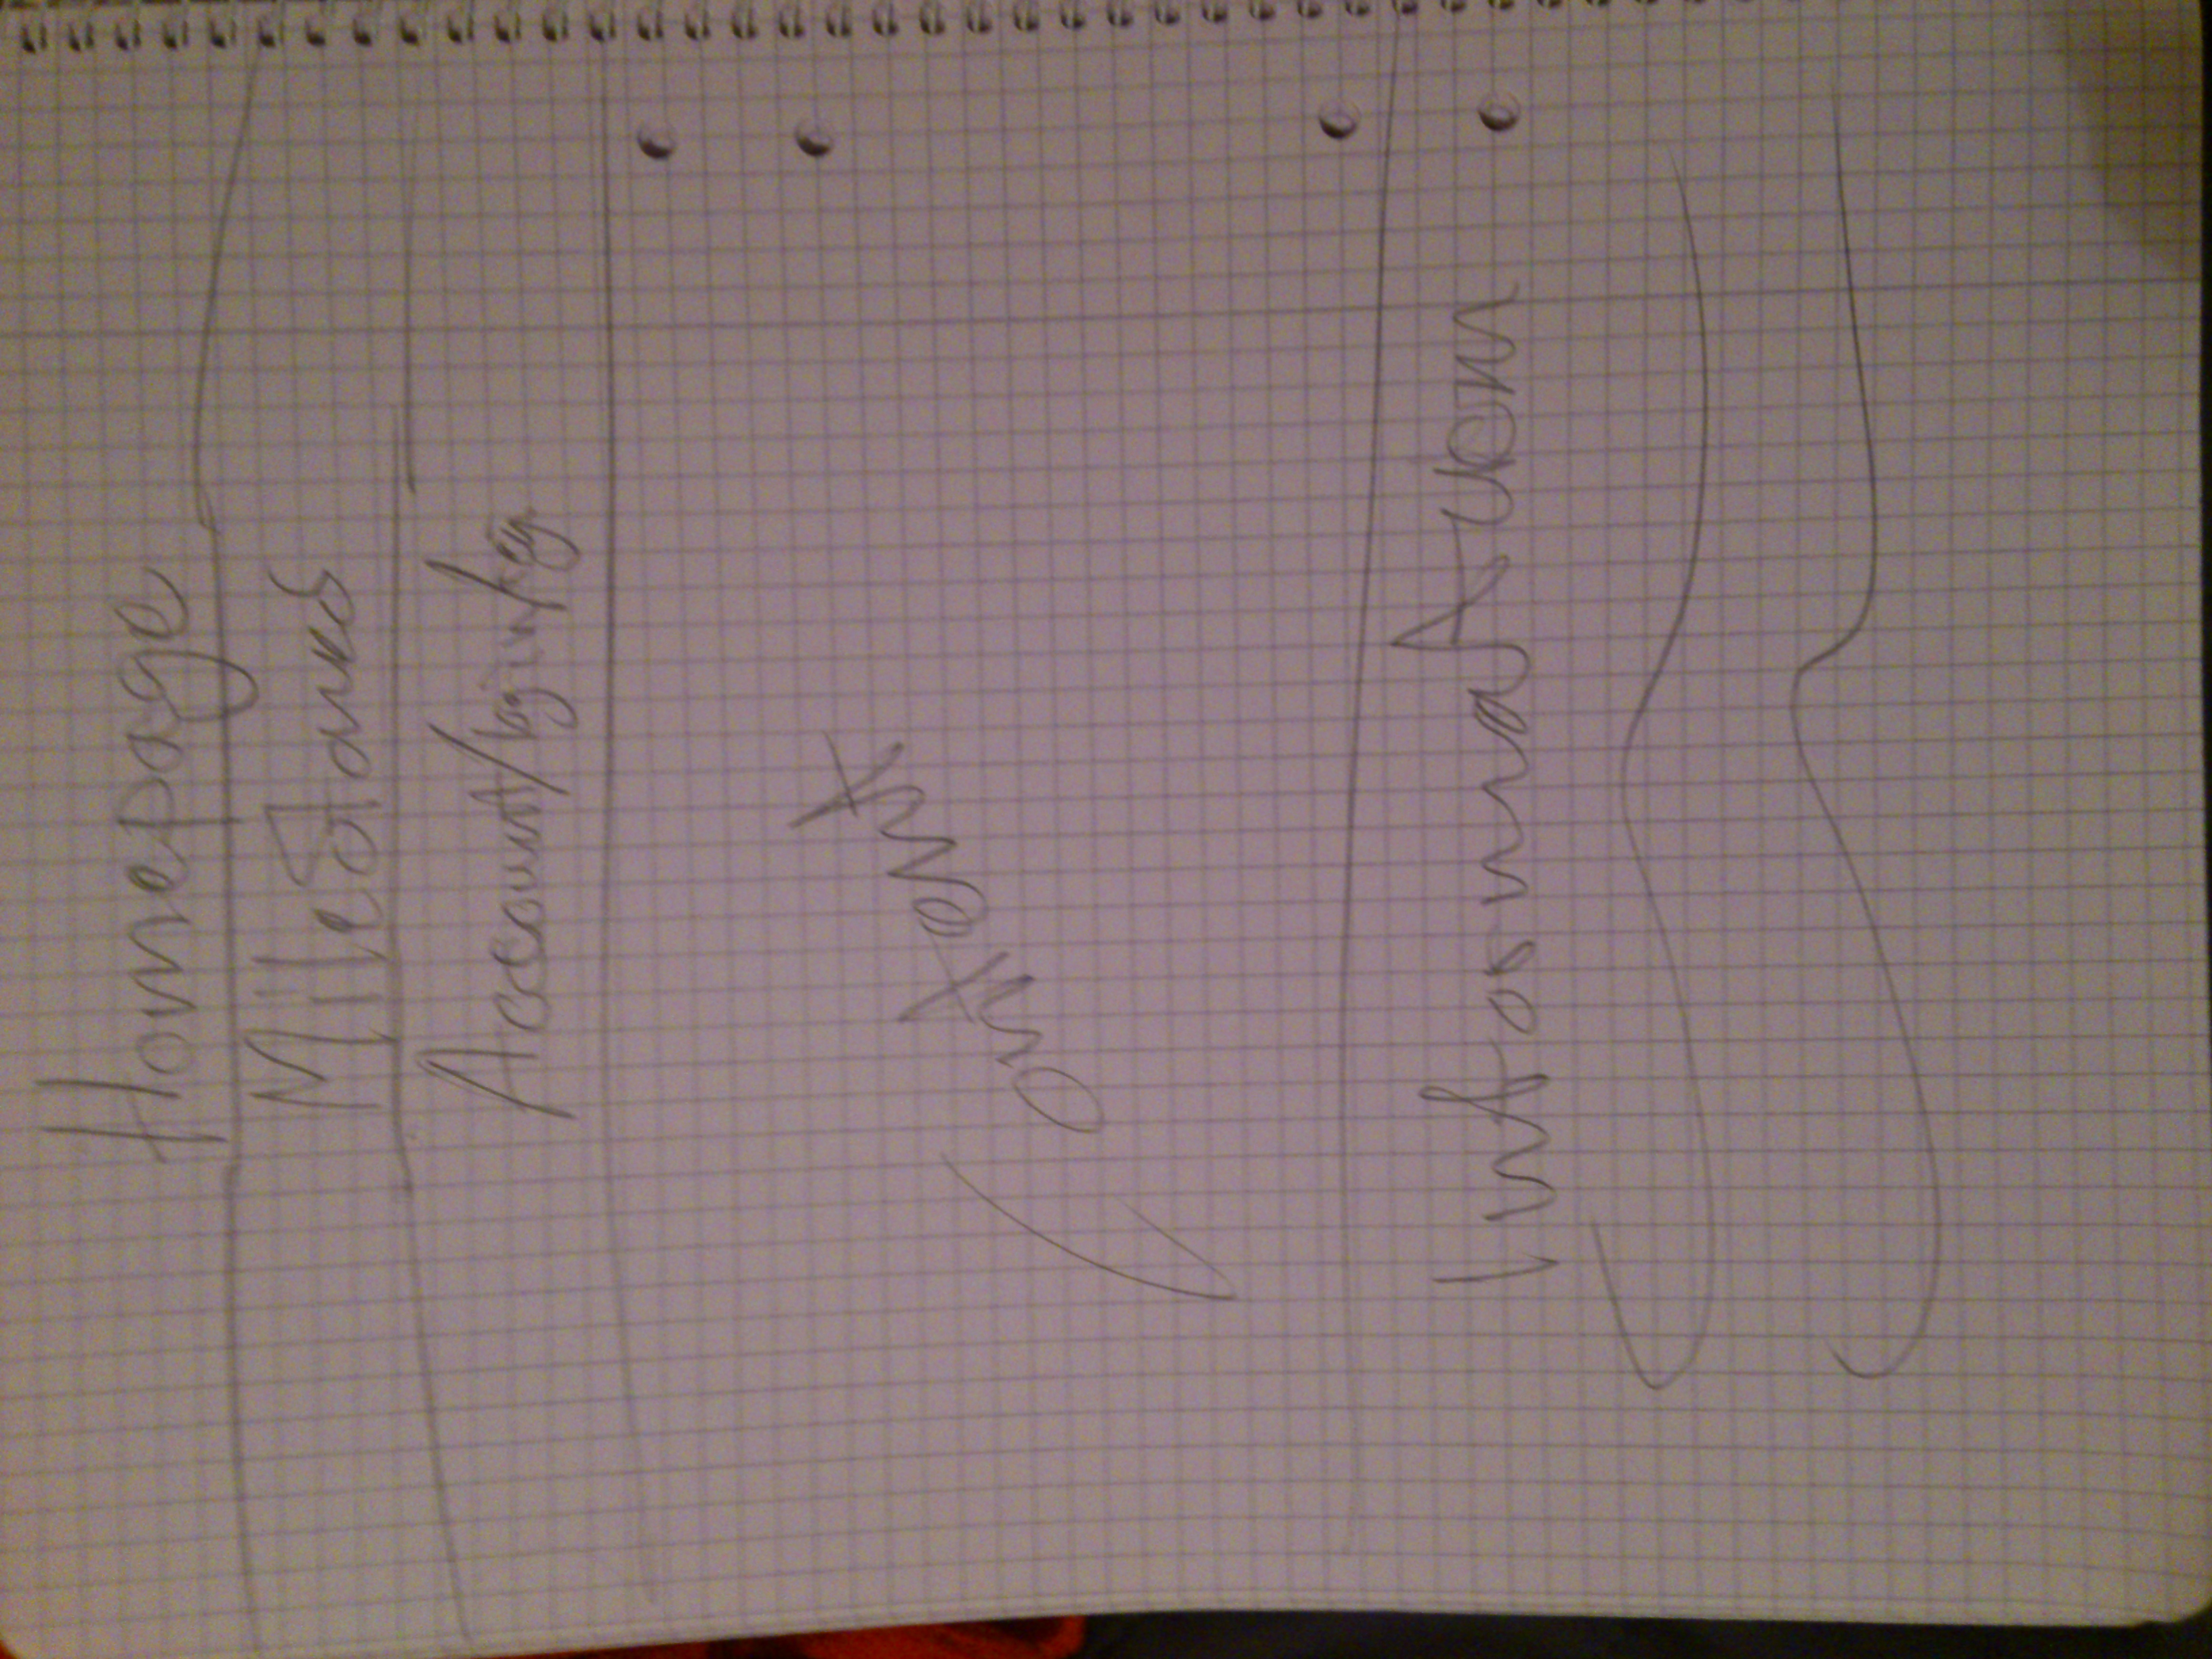 Homepage
Milestones
Account/login/reg.
Content
Information